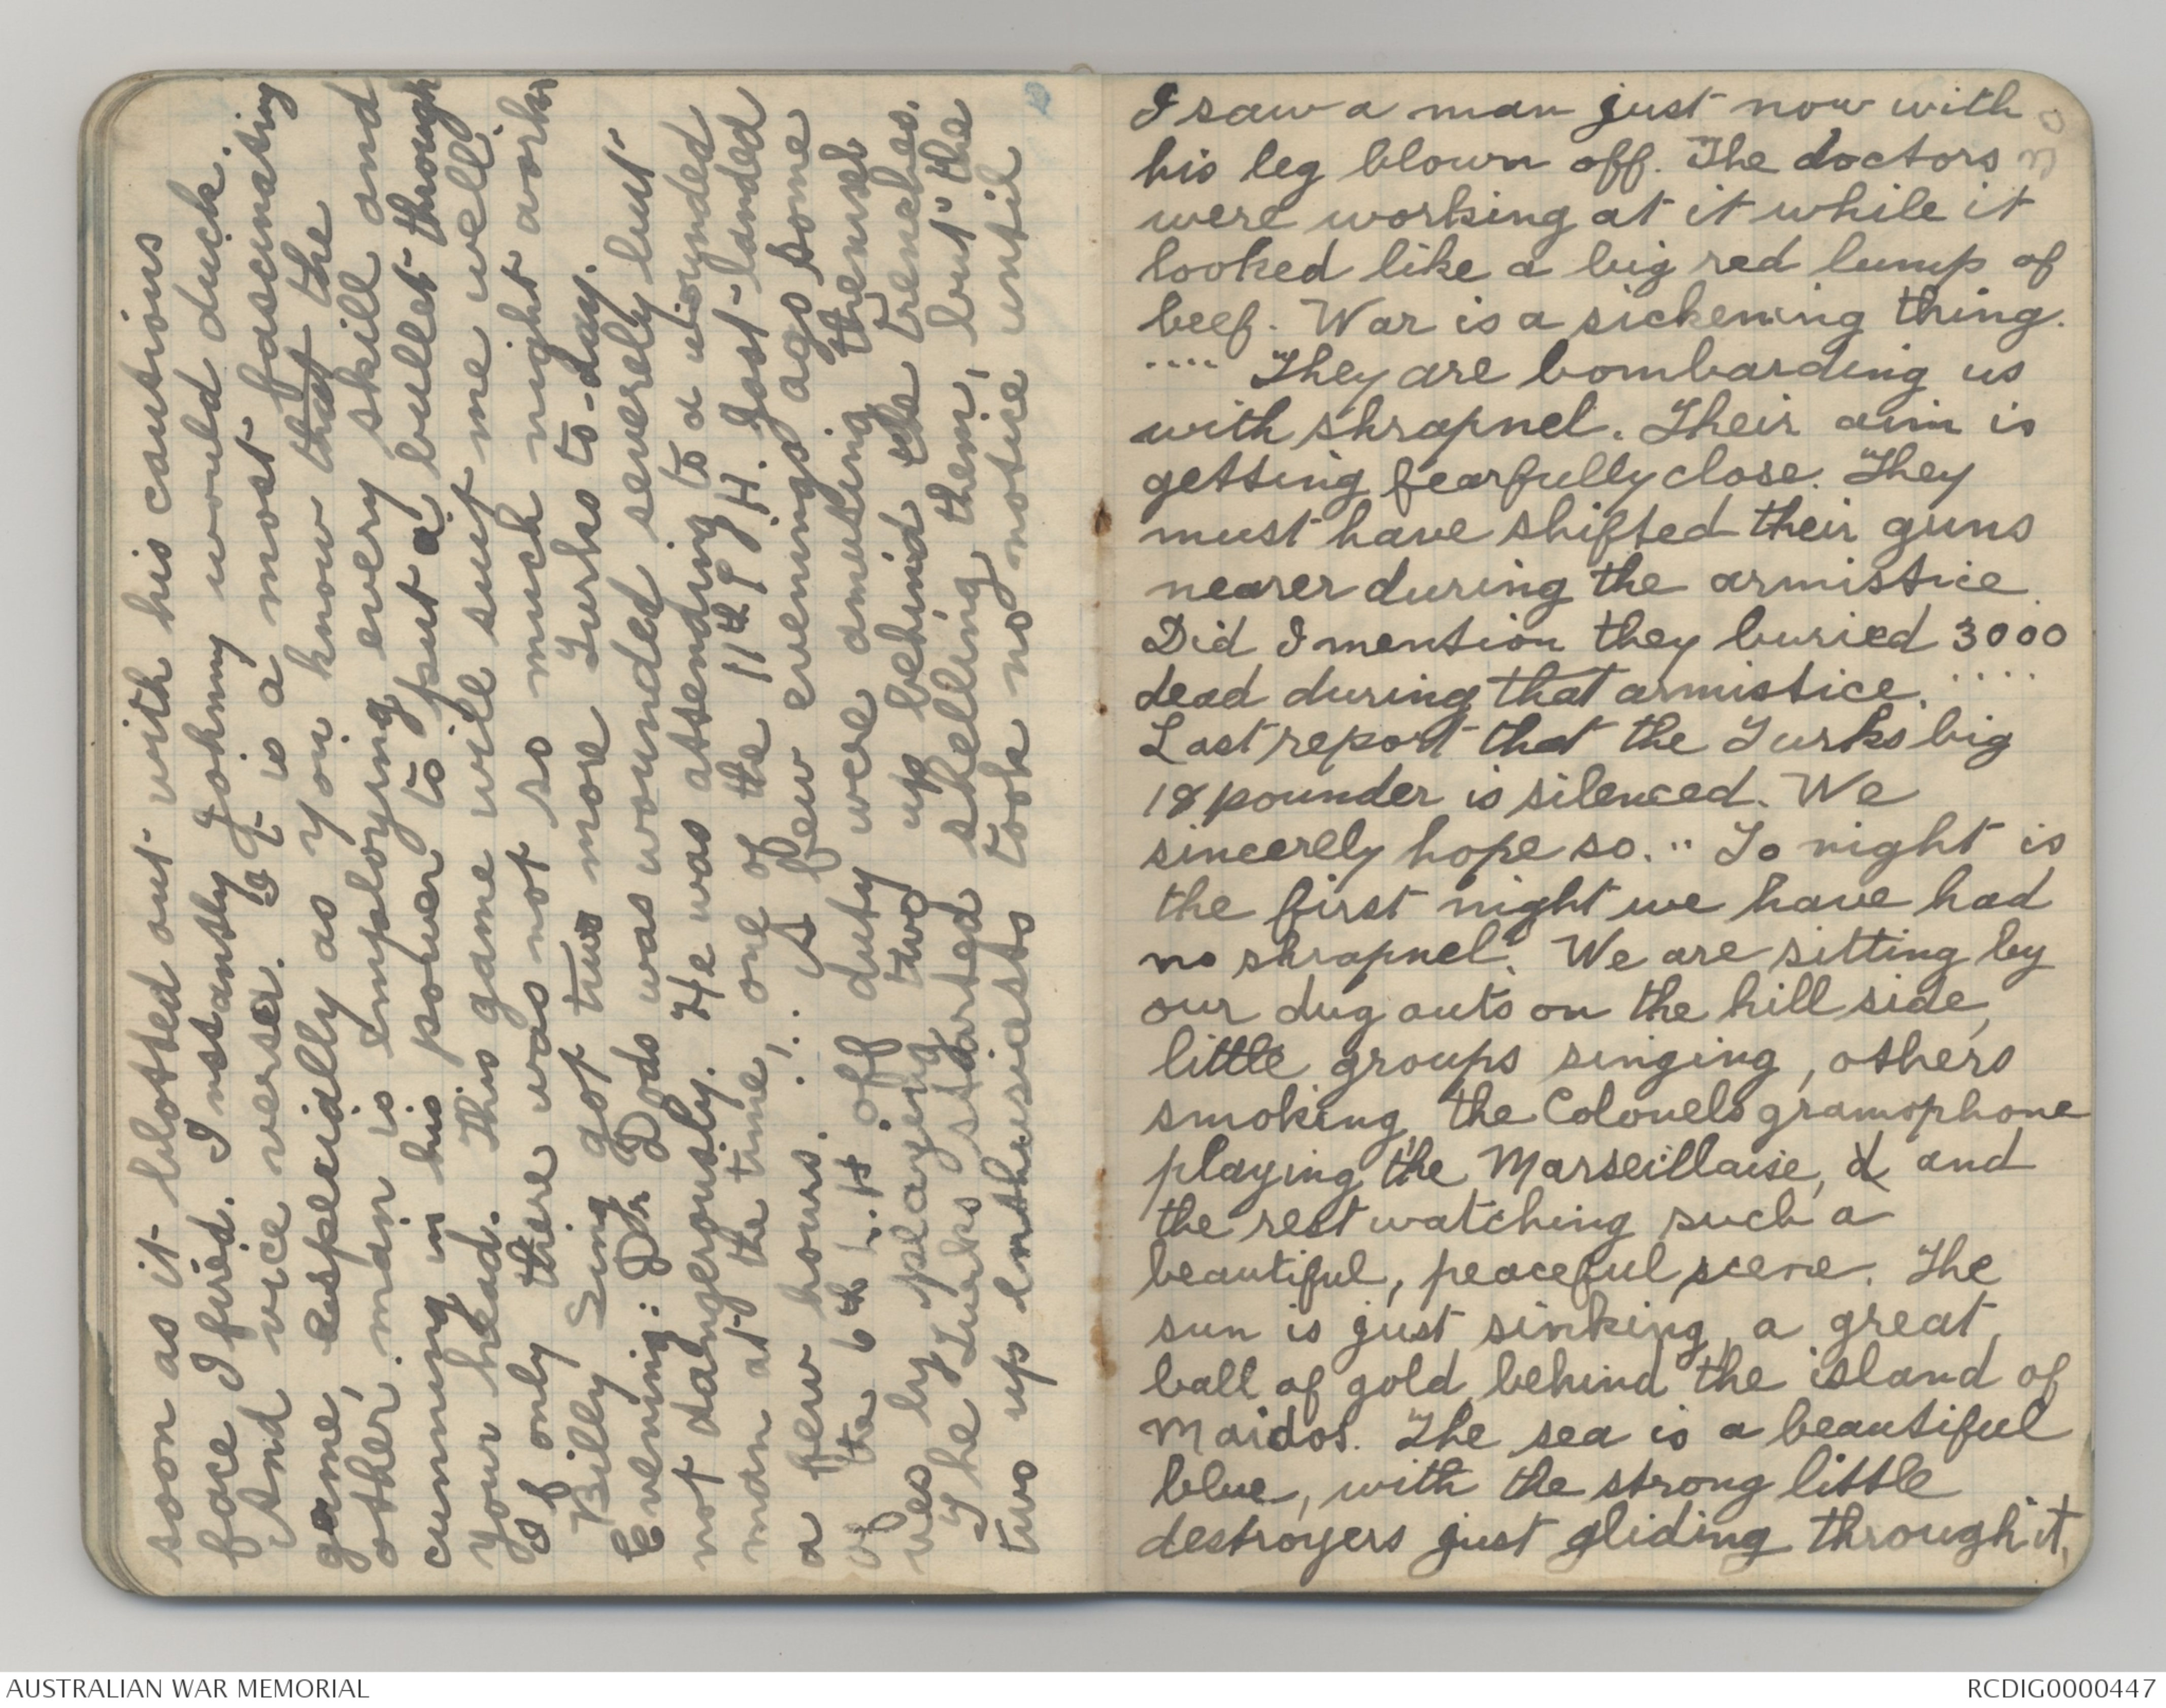 soon as it blotted out with his cautious
face I fired. Instantly Johnny would duck.
And vice versa. It is a most fascinating
game, especially as you know that the
other man is employing every skill and
cunning in his power to put a bullet through
your head. This game will suit me well.
If only there was not so much night work
Billy Sing got two more Turks to-day.
Evening: Dr Dods was wounded severely but
not dangerously. He was attending to a wounded
man at the time, one of the 11th L H. Just landed
a few hours. . . . A few evenings ago some
of the 6th L.H. off duty were amusing themsel
ves by playing two up behind the trenches.
The Turks started shelling them, but the
two up enthusiasts took no notice until
I saw a man just now with
his leg blown off. The doctors
were working at it while it
looked like a big red lump of
beef. War is a sickening thing.
.... They are bombarding us
with shrapnel. Their aim is
getting fearfully close. They
must have shifted their guns
nearer during the armistice.
Did I mention they buried 3000
dead during that armistice. ....
Last report that the Turks big
18 pounder is silenced. We
sincerely hope so. .. To night is
the first night we have had
no shrapnel. We are sitting by
our dug outs on the hill side,
little groups singing, others
smoking, the Colonels gramophone
playing the Marseillaise, & and
the rest watching such a
beautiful, peaceful scene. The
sun is just sinking, a great
ball of gold behind the island of
Maidos. The sea is a beautiful
blue, with the strong little
destroyers just gliding through it,
AUSTRALIAN WAR MEMORIAL
RCDIG0000447